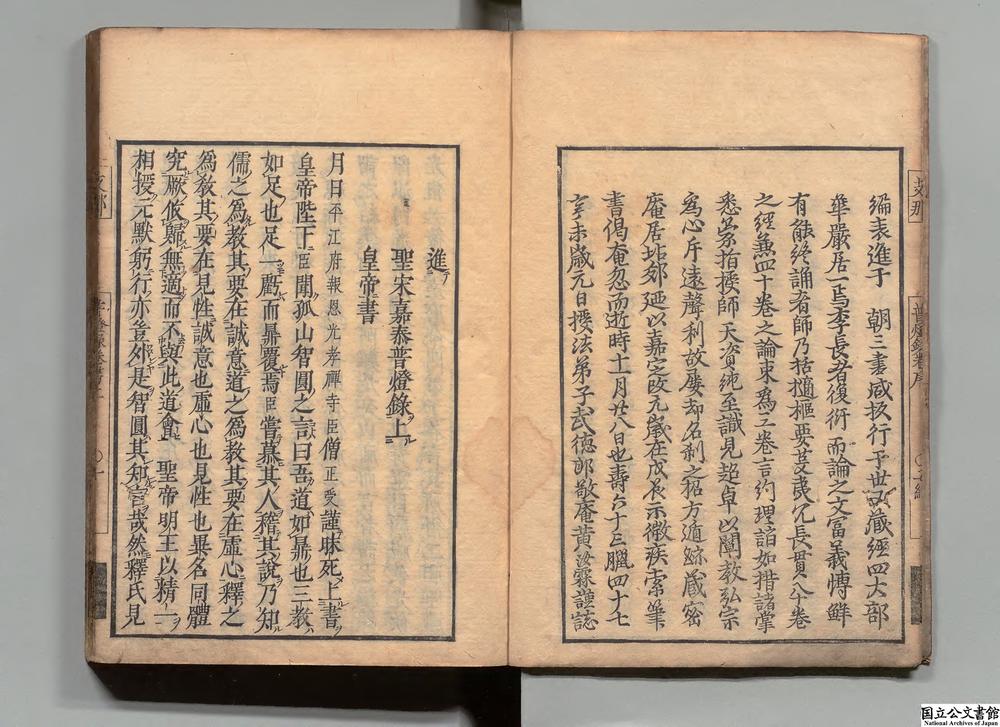 編表進于　朝三書咸扳行于世又藏經四大部
華嚴居一焉李長者復衍而論之文富義博鮮
有能終誦者師乃括擿樞要芟夷冗長貫八十卷
之經無四十卷之論束為三卷言約理諧如指諸掌
悉蒙指授師天資純至識見超卓以闡教弘宗
為心斥遠聲利故屢却名刹之招方遁跡藏密
庵居坫郊廼以嘉定改元歲在戊辰示微疾索筆
書偈奄忽而逝時十一月廿八日也壽六十三臘四十七
辛未歲元日授法弟子武德郎敬庵黃汝霖謹誌
進
聖宋嘉泰普燈錄上
皇帝書
月日平江府報恩光孝禪寺臣僧正受謹昧死上書
皇帝陛下臣聞孤山智圓之言曰吾道如鼎也三教
如足也足一虧而鼎覆焉臣嘗慕其人稽其說乃知
儒之為教其要在誠意道之為教其要在虛心釋之
為教其要在見性誠意也虛心也見性也異名同體
究厥攸歸無適而不與此道會　聖帝明王以精一
相授元默躬行亦豈外是智圓其知言哉然釋氏見
国立公文書館
National Archives of Japan